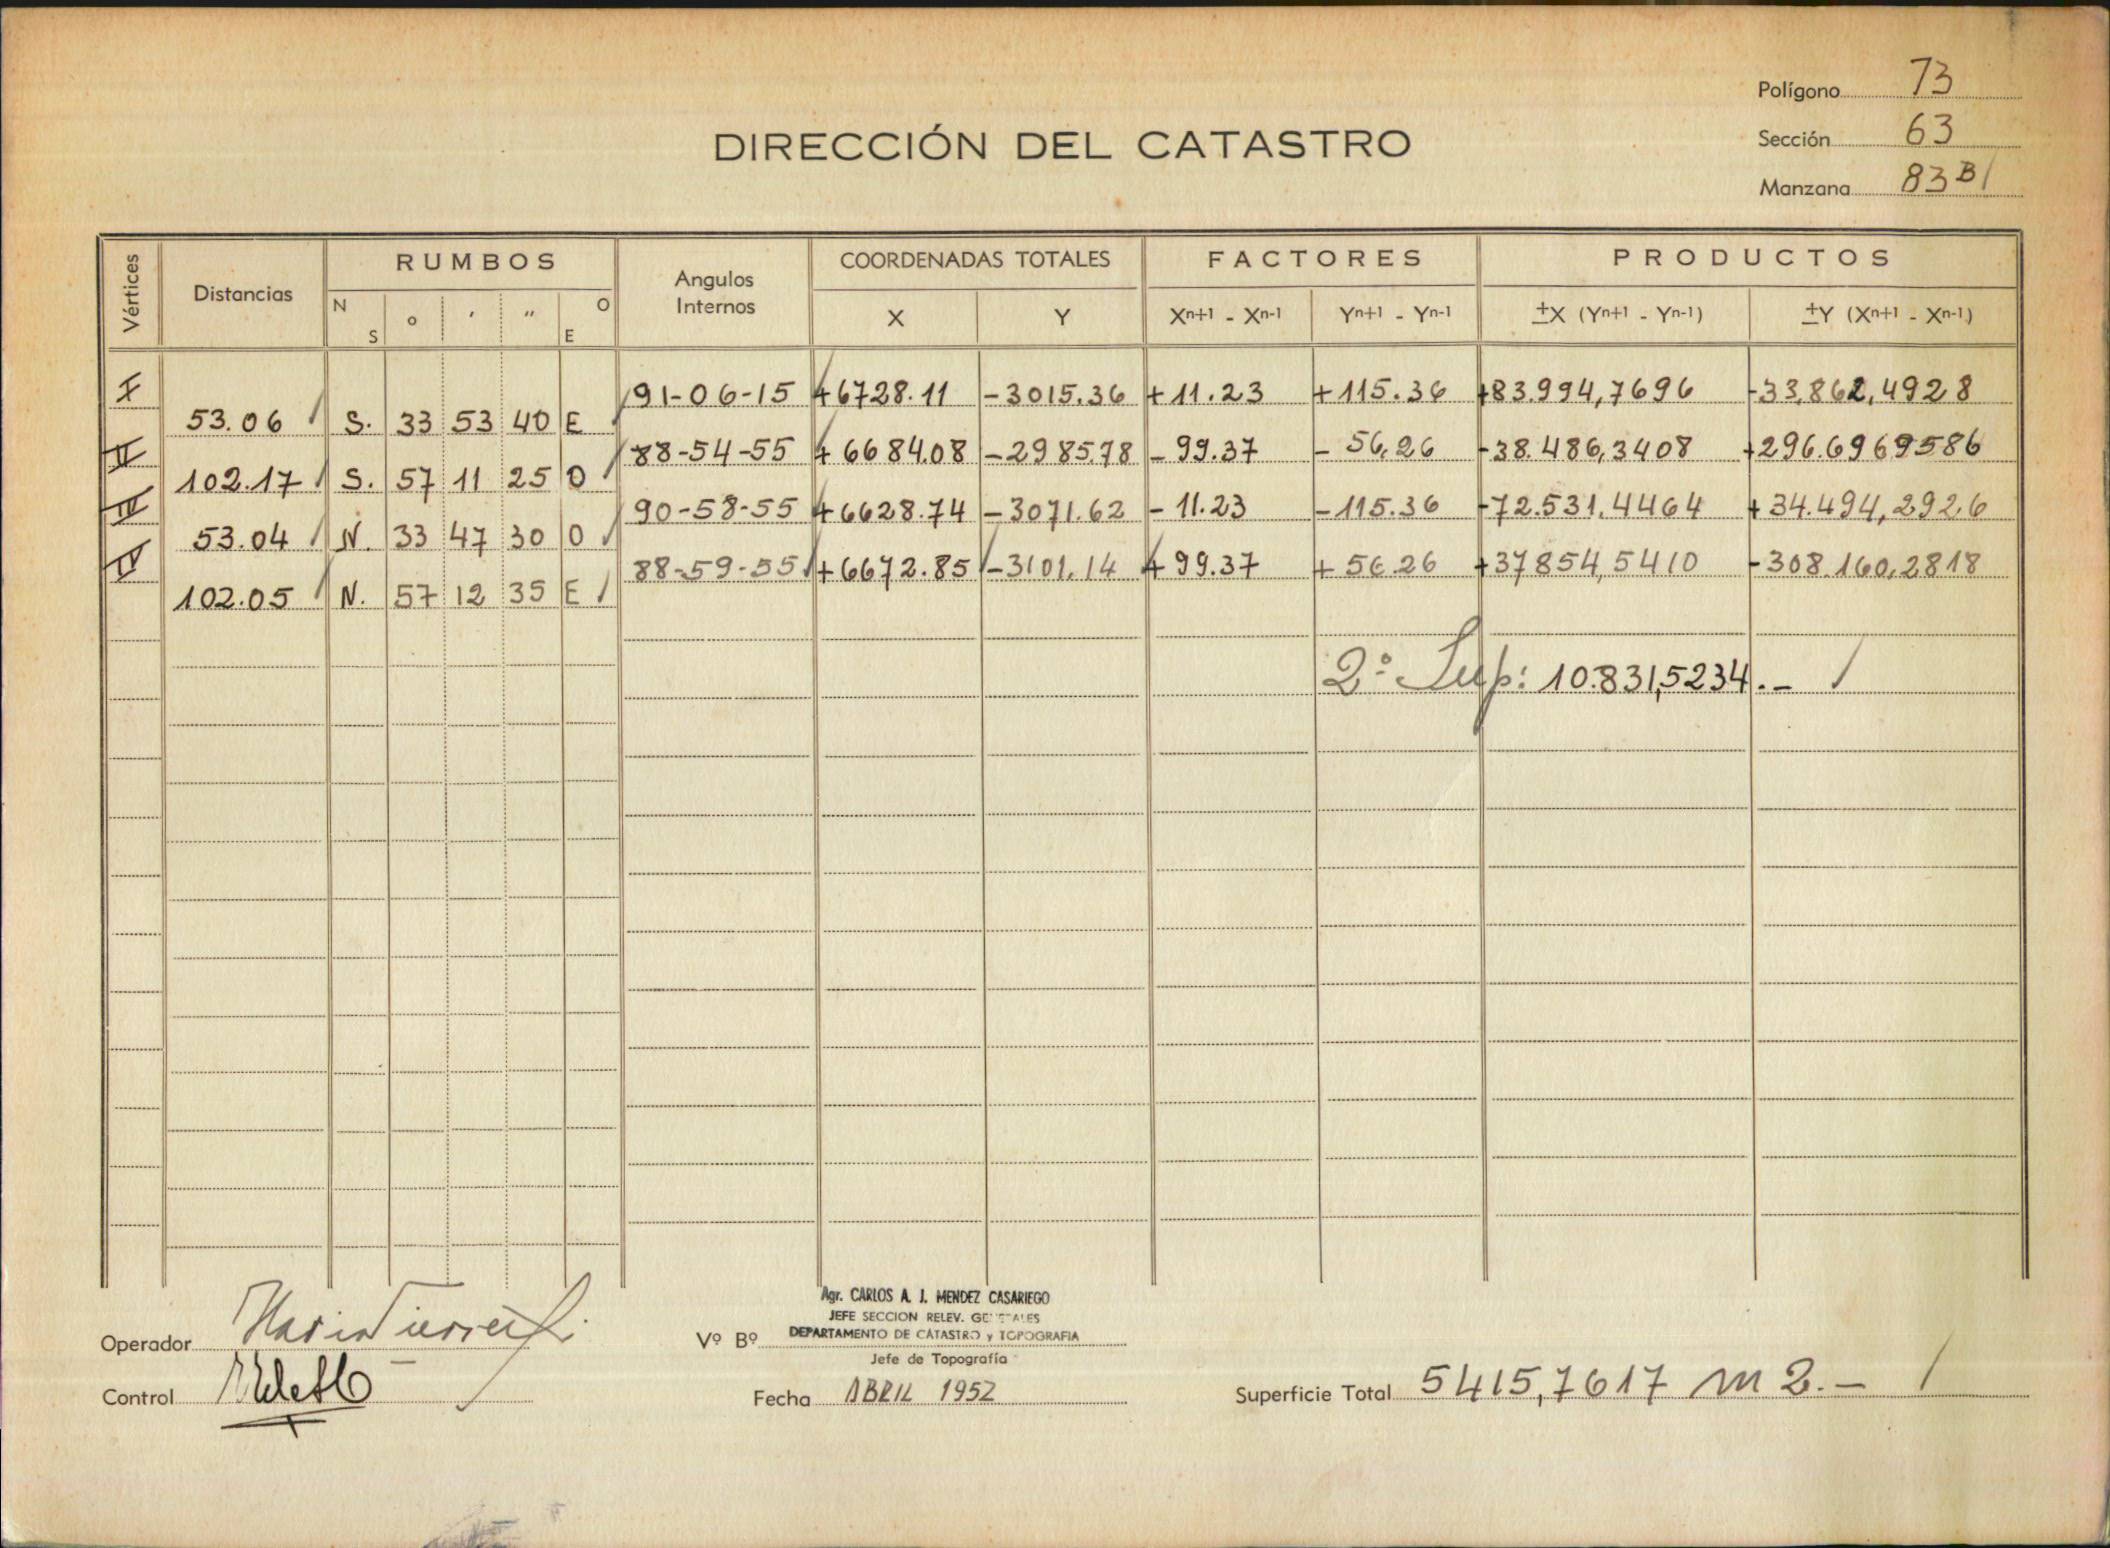 Polígono 73
DIRECCIÓN DEL CATASTRO
Sección 63
Manzana 83 B
Vértices Distancias RUMBOS Angulos Internos COORDENADAS TOTALES FACTORES PRODUCTOS
N S o ′ ″ O E X Y Xn+1 - Xn-1 Yn+1 - Yn-1 ±X (Yn+1 - Yn-1) ±Y (Xn+1 - Xn-1)
I 91-06-15 +6728.11 -3015.36 +11.23 +115.36 +83.994,7696 -33,862,4928
53.06 S. 33 53 40 E
II 88-54-55 +6684.08 -2985.78 -99.37 -56,26 -38.486,3408 +296.6969586
102.17 S. 57 11 25 O
III 90-58-55 +6628.74 -3071.62 -11.23 -115.36 -72.531.4464 +34.494,2926
53.04 N. 33 47 30 O
IV 88-59-55 +6672.85 -3101.14 +99.37 +56.26 +37854,5410 -308.160,2818
102.05 N. 57 12 35 E
2º Sup: 10.831,5234.-
Agr. CARLOS A. J. MENDEZ CASARIEGO
JEFE SECCION RELEV. GENERALES
Operador Vº Bº DEPARTAMENTO DE CATASTRO y TOPOGRAFIA
Jefe de Topografía
Control Fecha ABRIL 1952 Superficie Total 5415,7617 m 2.-